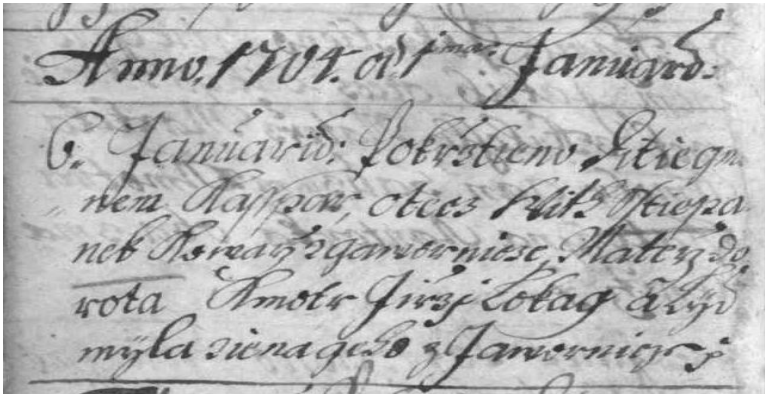 Anno. 1701. od 1ma Januarii:
6. Januarii: Pokrstieno Ditie gme
nem Kasspar, otecz Wit Sstiepa
nek Kowarz z gawornicze, Materz do
rota Kmotr Jirzj Lokag a Lyd
myla ziena geho z Jawornicze